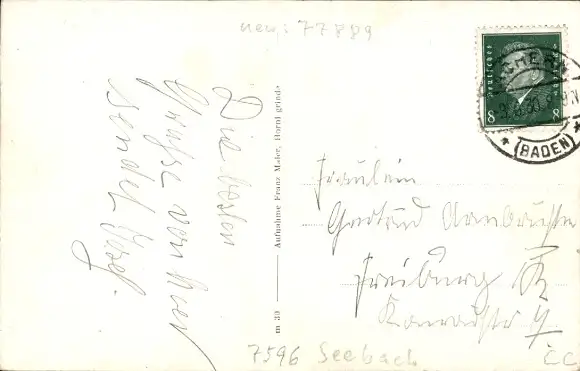 neu: 77889
Die besten
Grüße von hier
sendet Josef.
m 30 Aufnahme Franz Maler, Hornisgrinde
Deutsches Reich
8 8
ACHERN
(BADEN)
Fräulein
Gertrud
Freiburg
Konradstr
7596 Seebach
CC